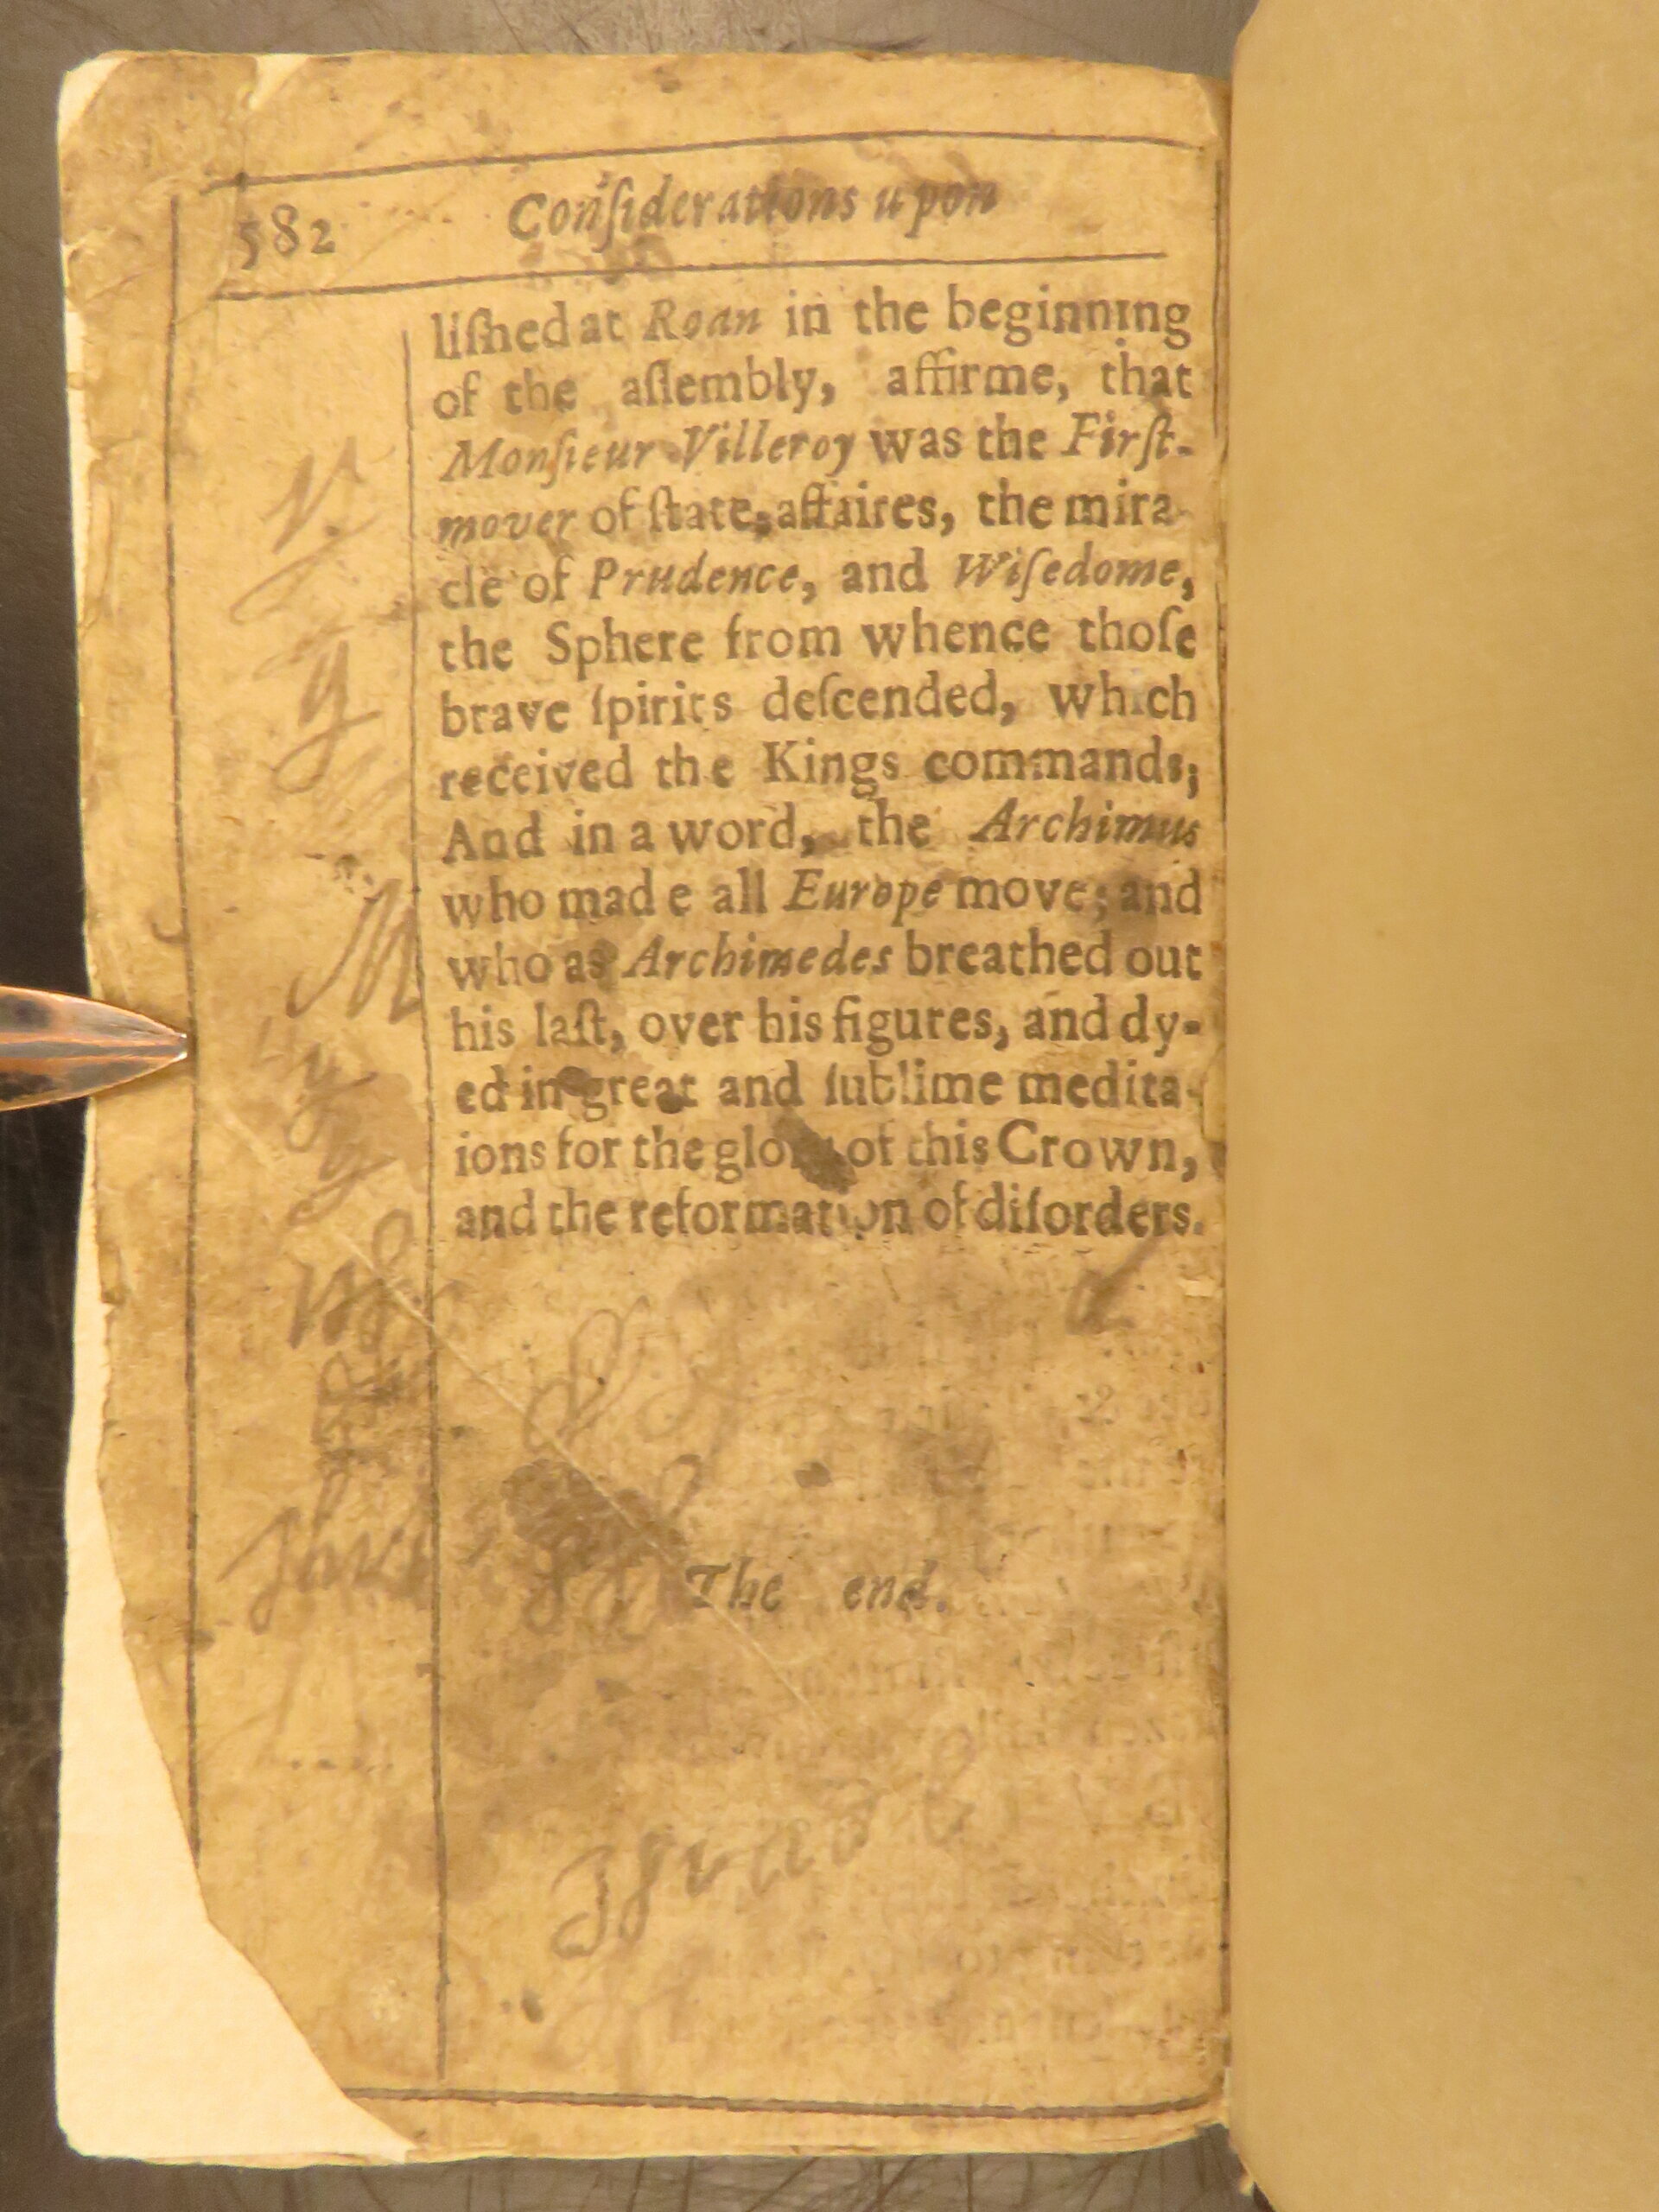 582 Conſiderations upon
liſhed at Roan in the beginning
of the aſſembly, affirme, that
Monſieur Villeroy was the Firſt-
mover of ſtate-affaires, the mira-
cle of Prudence, and Wiſedome,
the Sphere from whence thoſe
brave ſpirits deſcended, which
received the Kings commands;
And in a word, the Archimus
who made all Europe move; and
who as Archimedes breathed out
his laſt, over his figures, and dy-
ed in great and ſublime medita-
ions for the glory of this Crown,
and the reformation of diſorders.
The end.